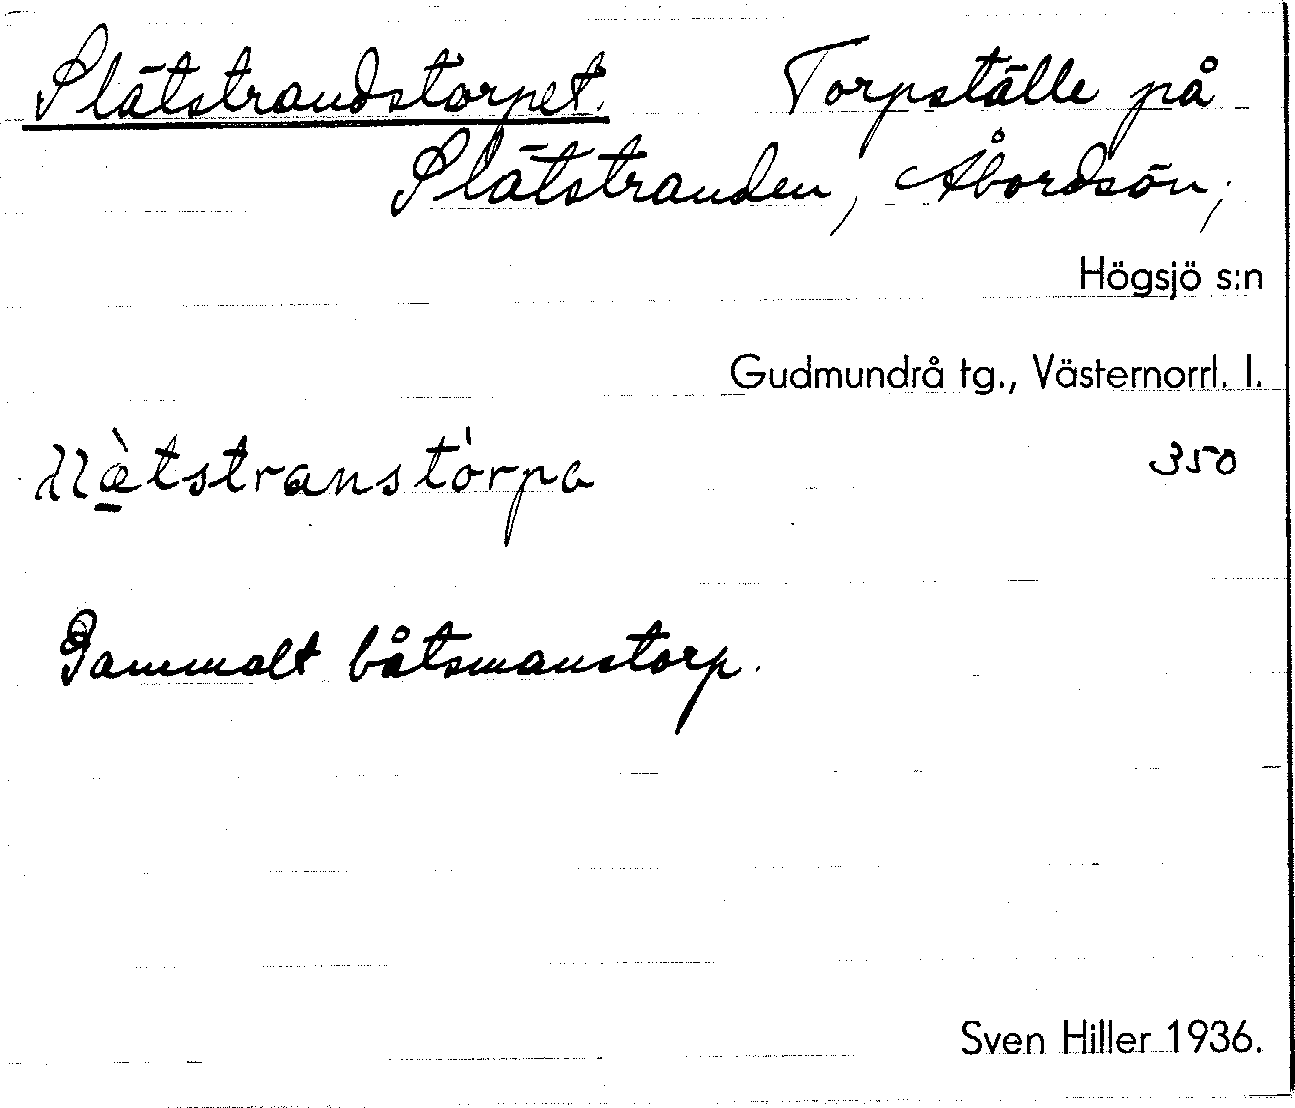 Slätstrandstorpet. Torpställe på
Slätstranden, Åbordsön,
Högsjö s:n
Gudmundrå tg., Västernorrl. l.
350
Gammalt båtsmanstorp.
Sven Hiller 1936.